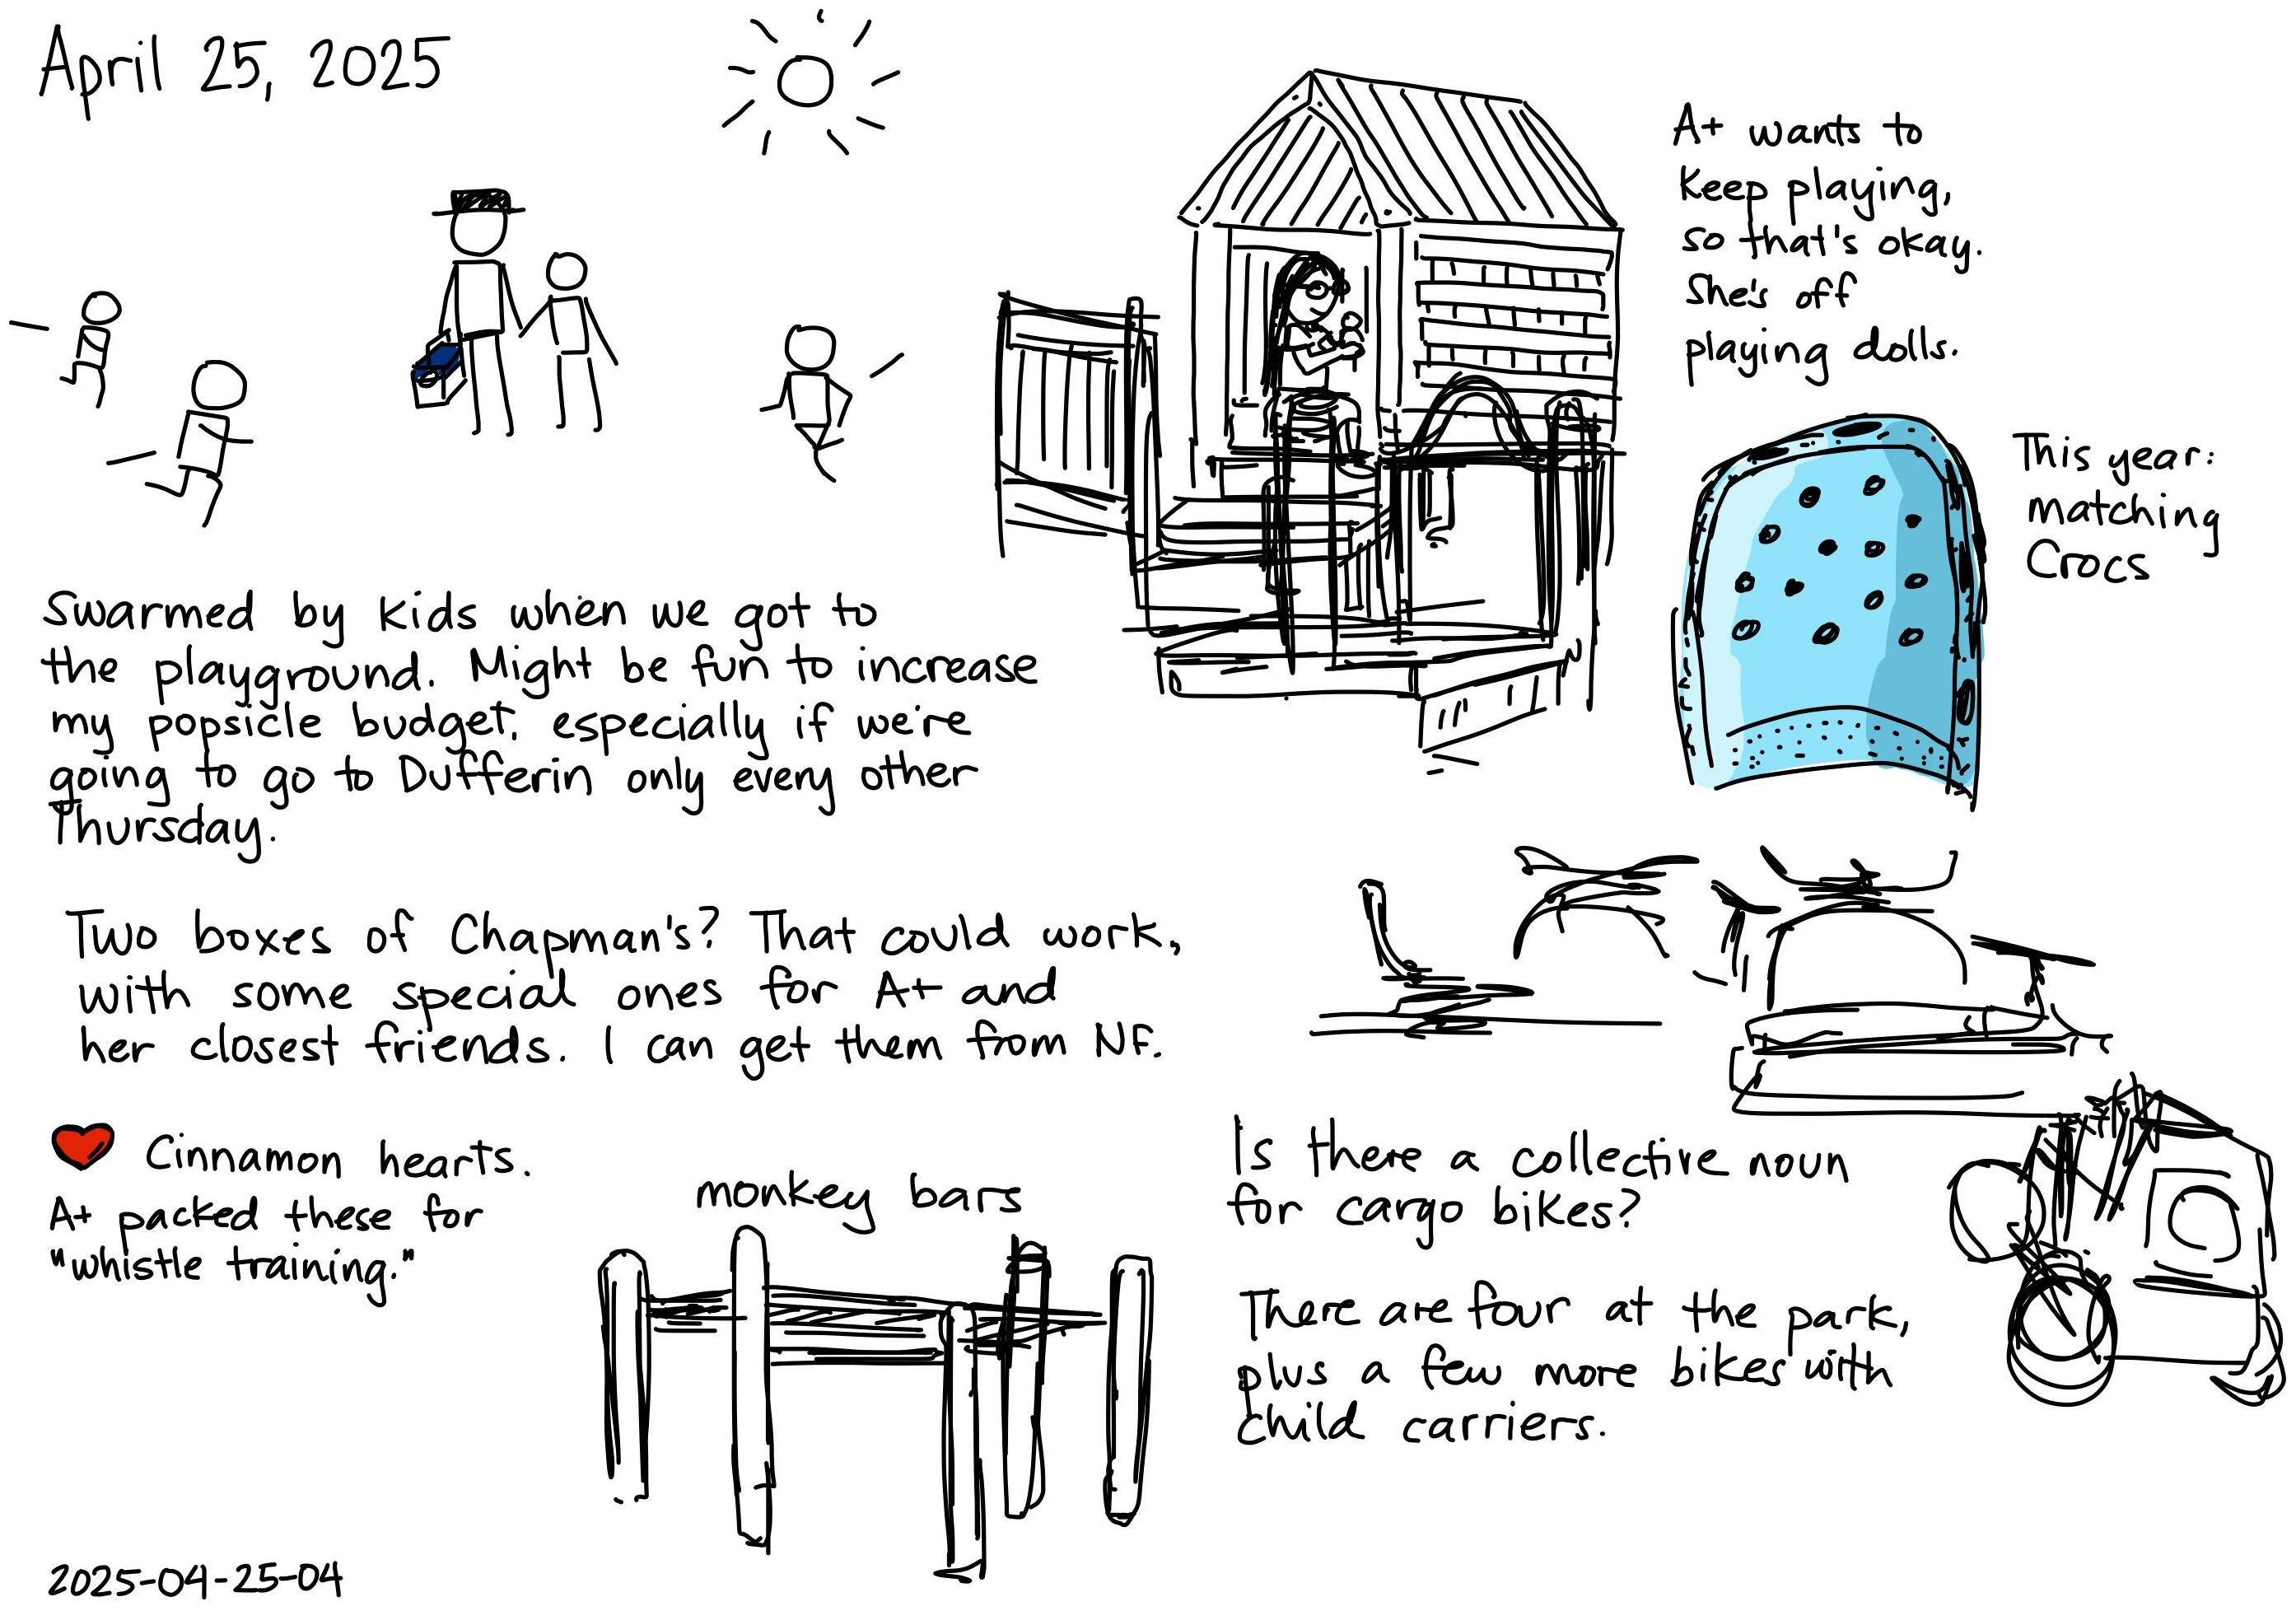 April 25, 2025
Swarmed by kids when we got to
the playground. Might be fun to increase
my popsicle budget, especially if we're
going to go to Dufferin only every other
Thursday.
Two boxes of Chapman's? That could work,
with some special ones for A+ and
her closest friends. I can get them from NF.
Cinnamon hearts.
A+ packed these for
"whistle training."
monkey bars
A+ wants to
keep playing,
so that's okay.
She's off
playing dolls.
This year:
matching
Crocs
Is there a collective noun
for cargo bikes?
There are four at the park,
plus a few more bikes with
child carriers.
2025-04-25-04